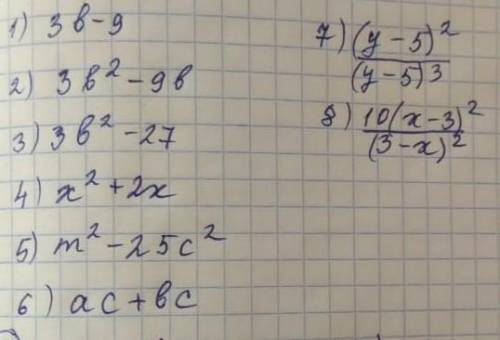 1) 3в-9
2) 3в² - 9в
3) 3в² - 27
4) x² + 2x
5) m² - 25c²
6) ac + вc
7) (y - 5)²
(y - 5)³
8) 10(x - 3)²
(3 - x)²